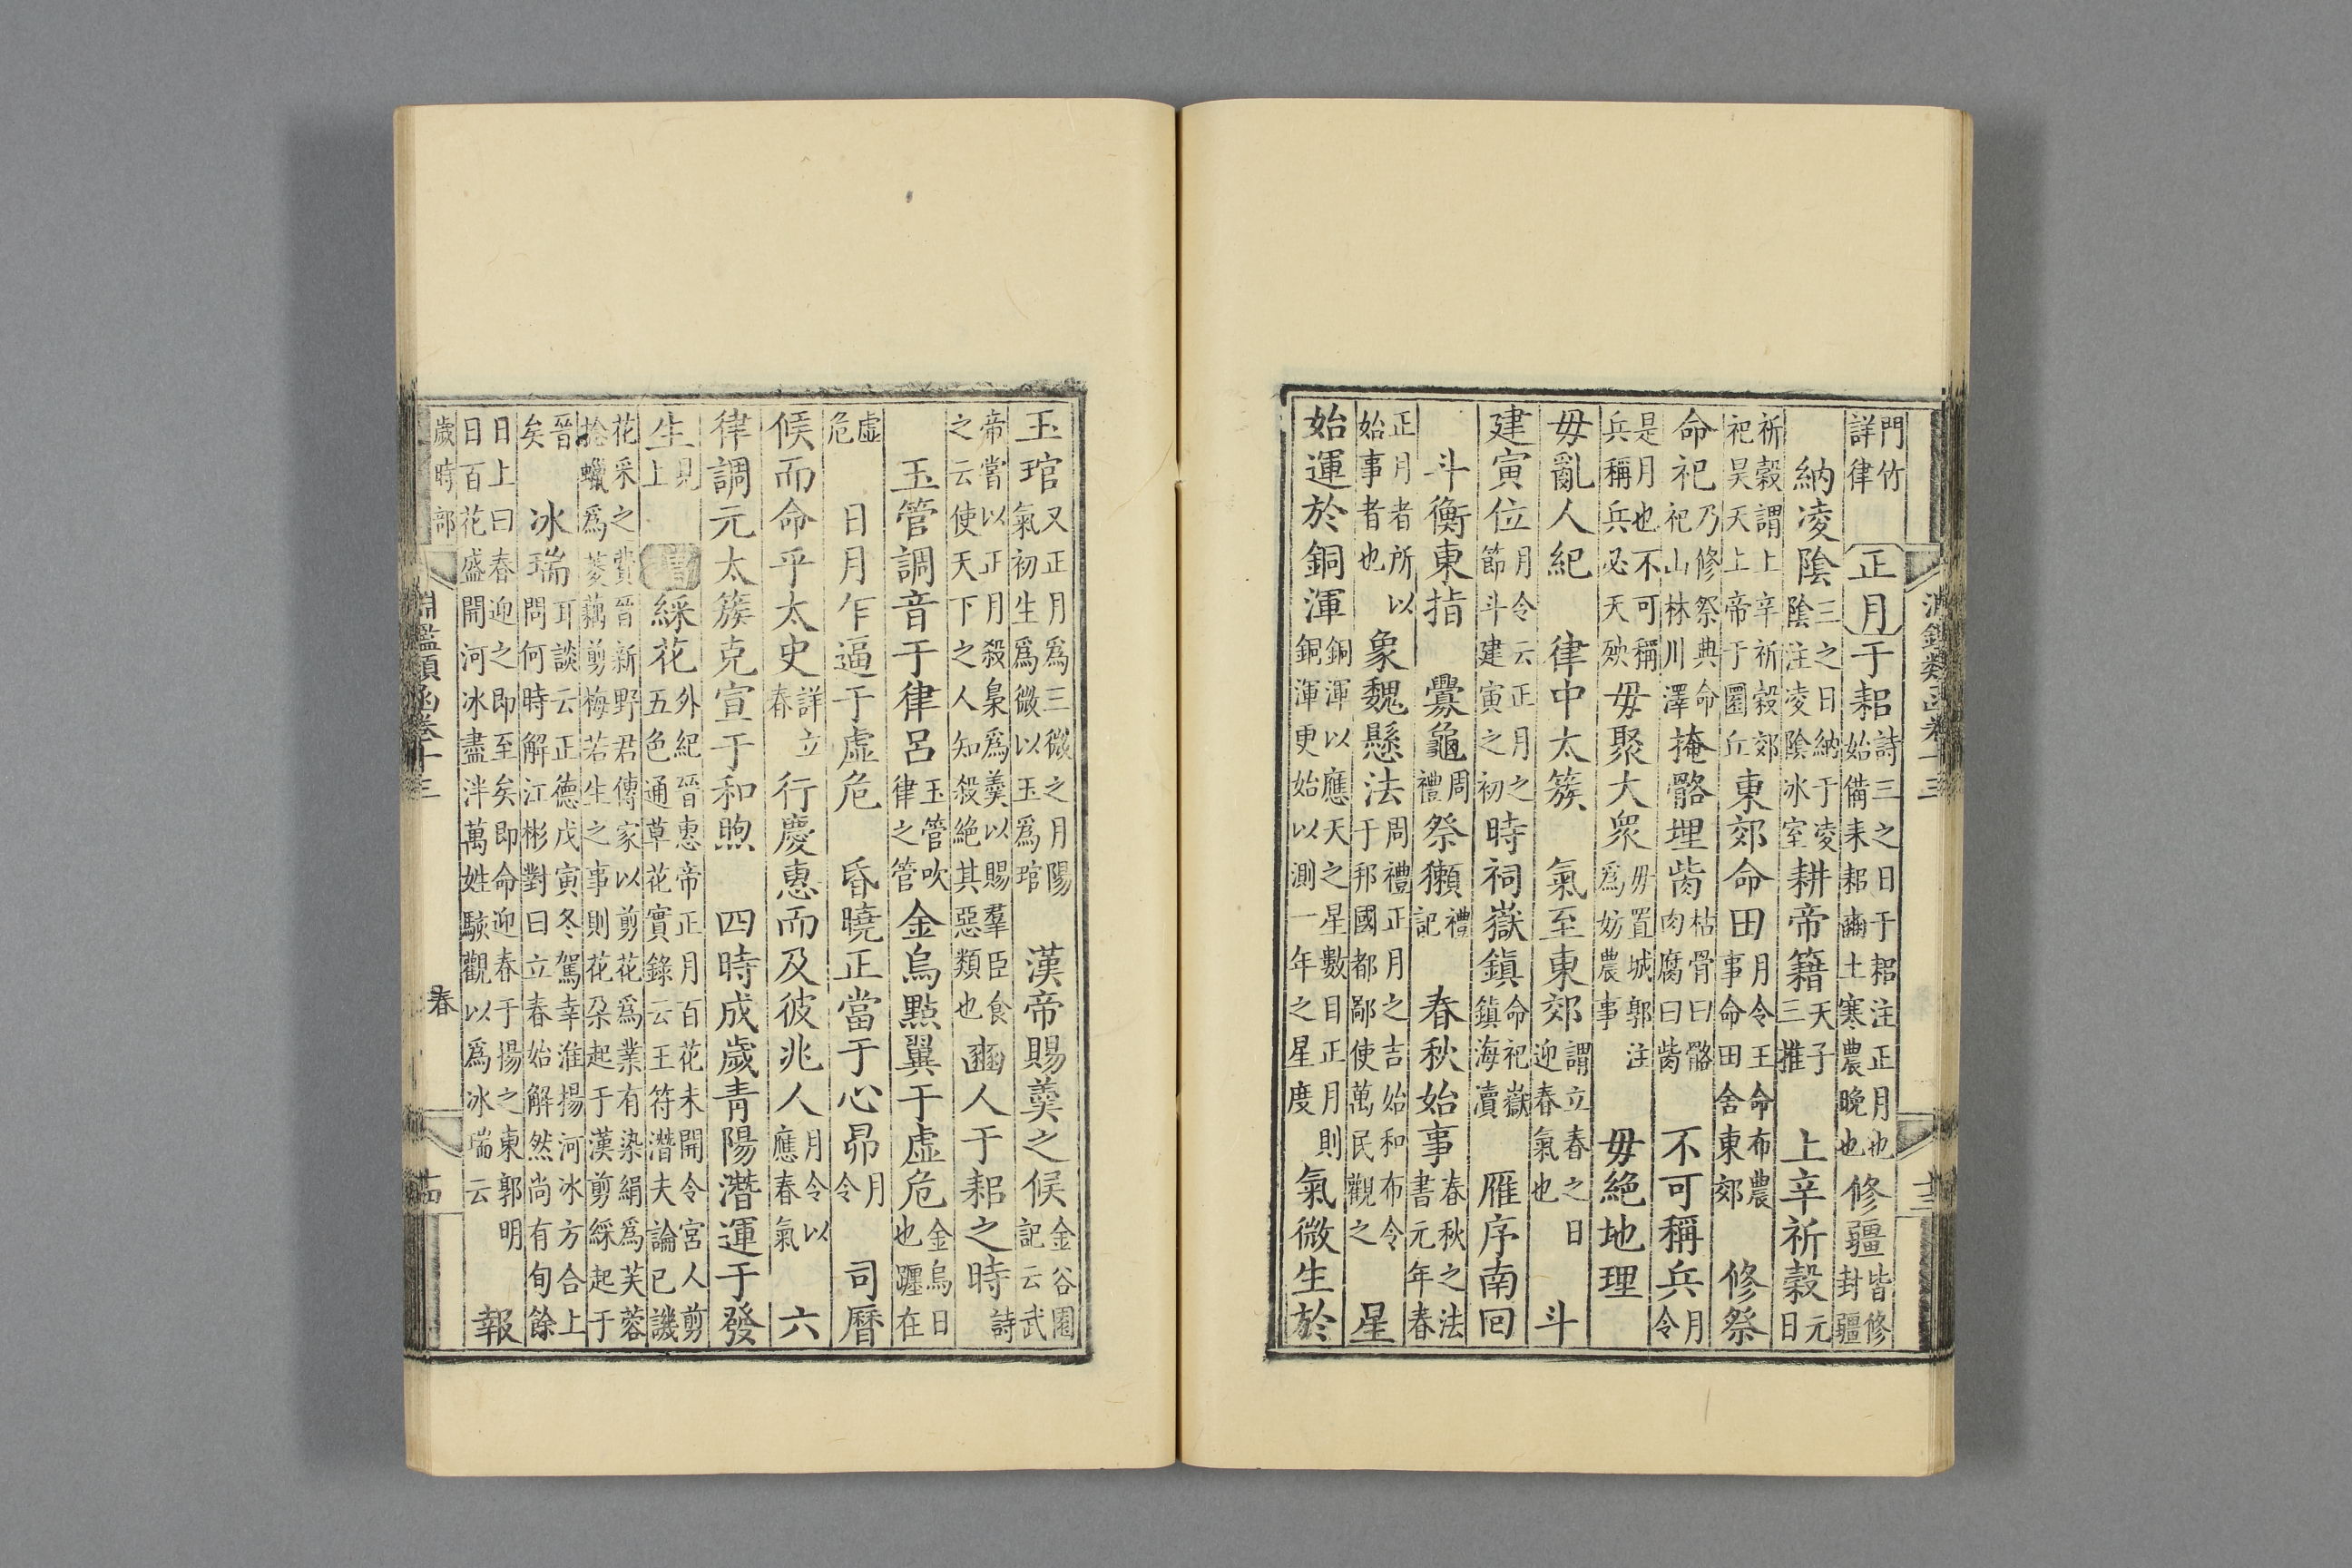 淵鑑類函卷十三
十三
門竹詳律 正月 于耜詩三之日于耜注正月也始備耒耜豳土寒農晚也 修疆皆修封疆
納凌陰三之日納于凌陰注凌陰冰室 耕帝籍天子三推 上辛祈穀元日
祈穀謂上辛祈穀郊祀昊天上帝于圜丘 東郊命田月令王命布農事命田舍東郊 修祭
命祀乃修祭典命祀山林川澤 掩骼埋胔枯骨曰骼肉腐曰胔 不可稱兵月令
是月也不可稱兵稱兵必天殃 毋聚大衆毋置城郭注爲妨農事 毋絕地理
毋亂人紀 律中太簇 氣至東郊謂立春之日迎春氣也 斗
建寅位月令云正月之節斗建寅之初 時祠嶽鎮命祀嶽鎮海瀆 雁序南回
斗衡東指 爨龜周禮 祭獺禮記 春秋始事春秋之法書元年春
正月者所以始事者也 象魏懸法周禮正月之吉始和布令于邦國都鄙使萬民觀之 星
始運於銅渾銅渾以應天之星數目正月則銅渾更始以測一年之星度 氣微生於
玉琯又正月爲三微之月陽氣初生爲微以玉爲琯 漢帝賜羹之候金谷園記云武
帝當以正月殺梟爲羹以賜羣臣食之云使天下之人知殺絕其惡類也 豳人于耜之時詩
玉管調音于律呂玉管吹律之管 金烏點翼于虛危金烏日也躔在
虛危 日月乍逼于虛危 昏曉正當于心昴月令 司曆
候而命乎太史詳立春 行慶惠而及彼兆人月令以應春氣 六
律調元太簇克宣于和煦 四時成歲青陽潛運于發
生見上 增 綵花外紀晉惠帝正月百花未開令宮人剪五色通草花實錄云王符潛夫論已譏
花采之費晉新野君傳家以剪花爲業有染絹爲芙蓉捻蠟爲菱藕剪梅若生之事則花朵起于漢剪綵起于
晉矣 冰瑞耳談云正德戊寅冬駕幸淮揚河冰方合上問何時解江彬對曰立春始解然尚有旬餘
日上曰春迎之即至矣即命迎春于揚之東郭明日百花盛開河冰盡泮萬姓駭觀以爲冰瑞云 報
歲時部
淵鑑類函卷十三
春
十四